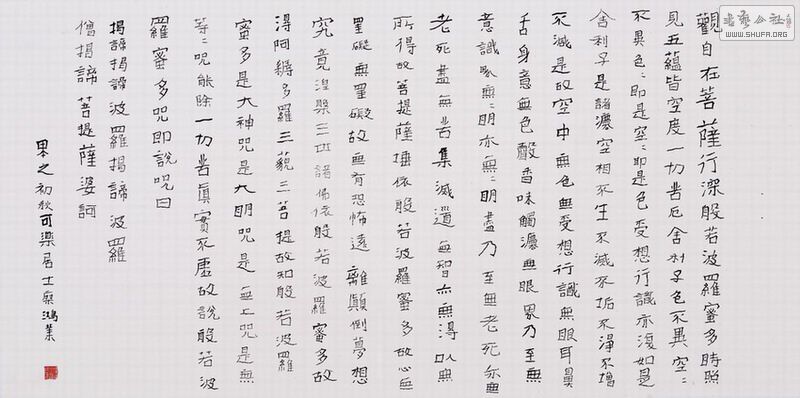 觀自在菩薩行深般若波羅蜜多時照
見五蘊皆空度一切苦厄舍利子色不異空空
不異色色即是空空即是色受想行識亦復如是
舍利子是諸法空相不生不滅不垢不淨不增
不減是故空中無色無受想行識無眼耳鼻
舌身意無色聲香味觸法無眼界乃至無
意識界無無明亦無無明盡乃至無老死亦無
老死盡無苦集滅道無智亦無得以無
所得故菩提薩埵依般若波羅蜜多故心無
罣礙無罣礙故無有恐怖遠離顛倒夢想
究竟涅槃三世諸佛依般若波羅蜜多故
得阿耨多羅三藐三菩提故知般若波羅
蜜多是大神咒是大明咒是無上咒是無
等等咒能除一切苦真實不虛故說般若波
羅蜜多咒即說咒曰
揭諦揭諦波羅揭諦波羅
僧揭諦菩提薩婆訶
之初秋可染居士鴻業
書藝公社
WWW.SHUFA.ORG